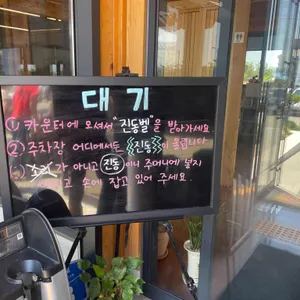 대 기
① 카운터에 오셔서 "진동벨"을 받아가세요
② 주차장 어디에서든 진동이 울립니다
소리가 아니고 진동이니 주머니에 넣지
손에 잡고 있어 주세요.